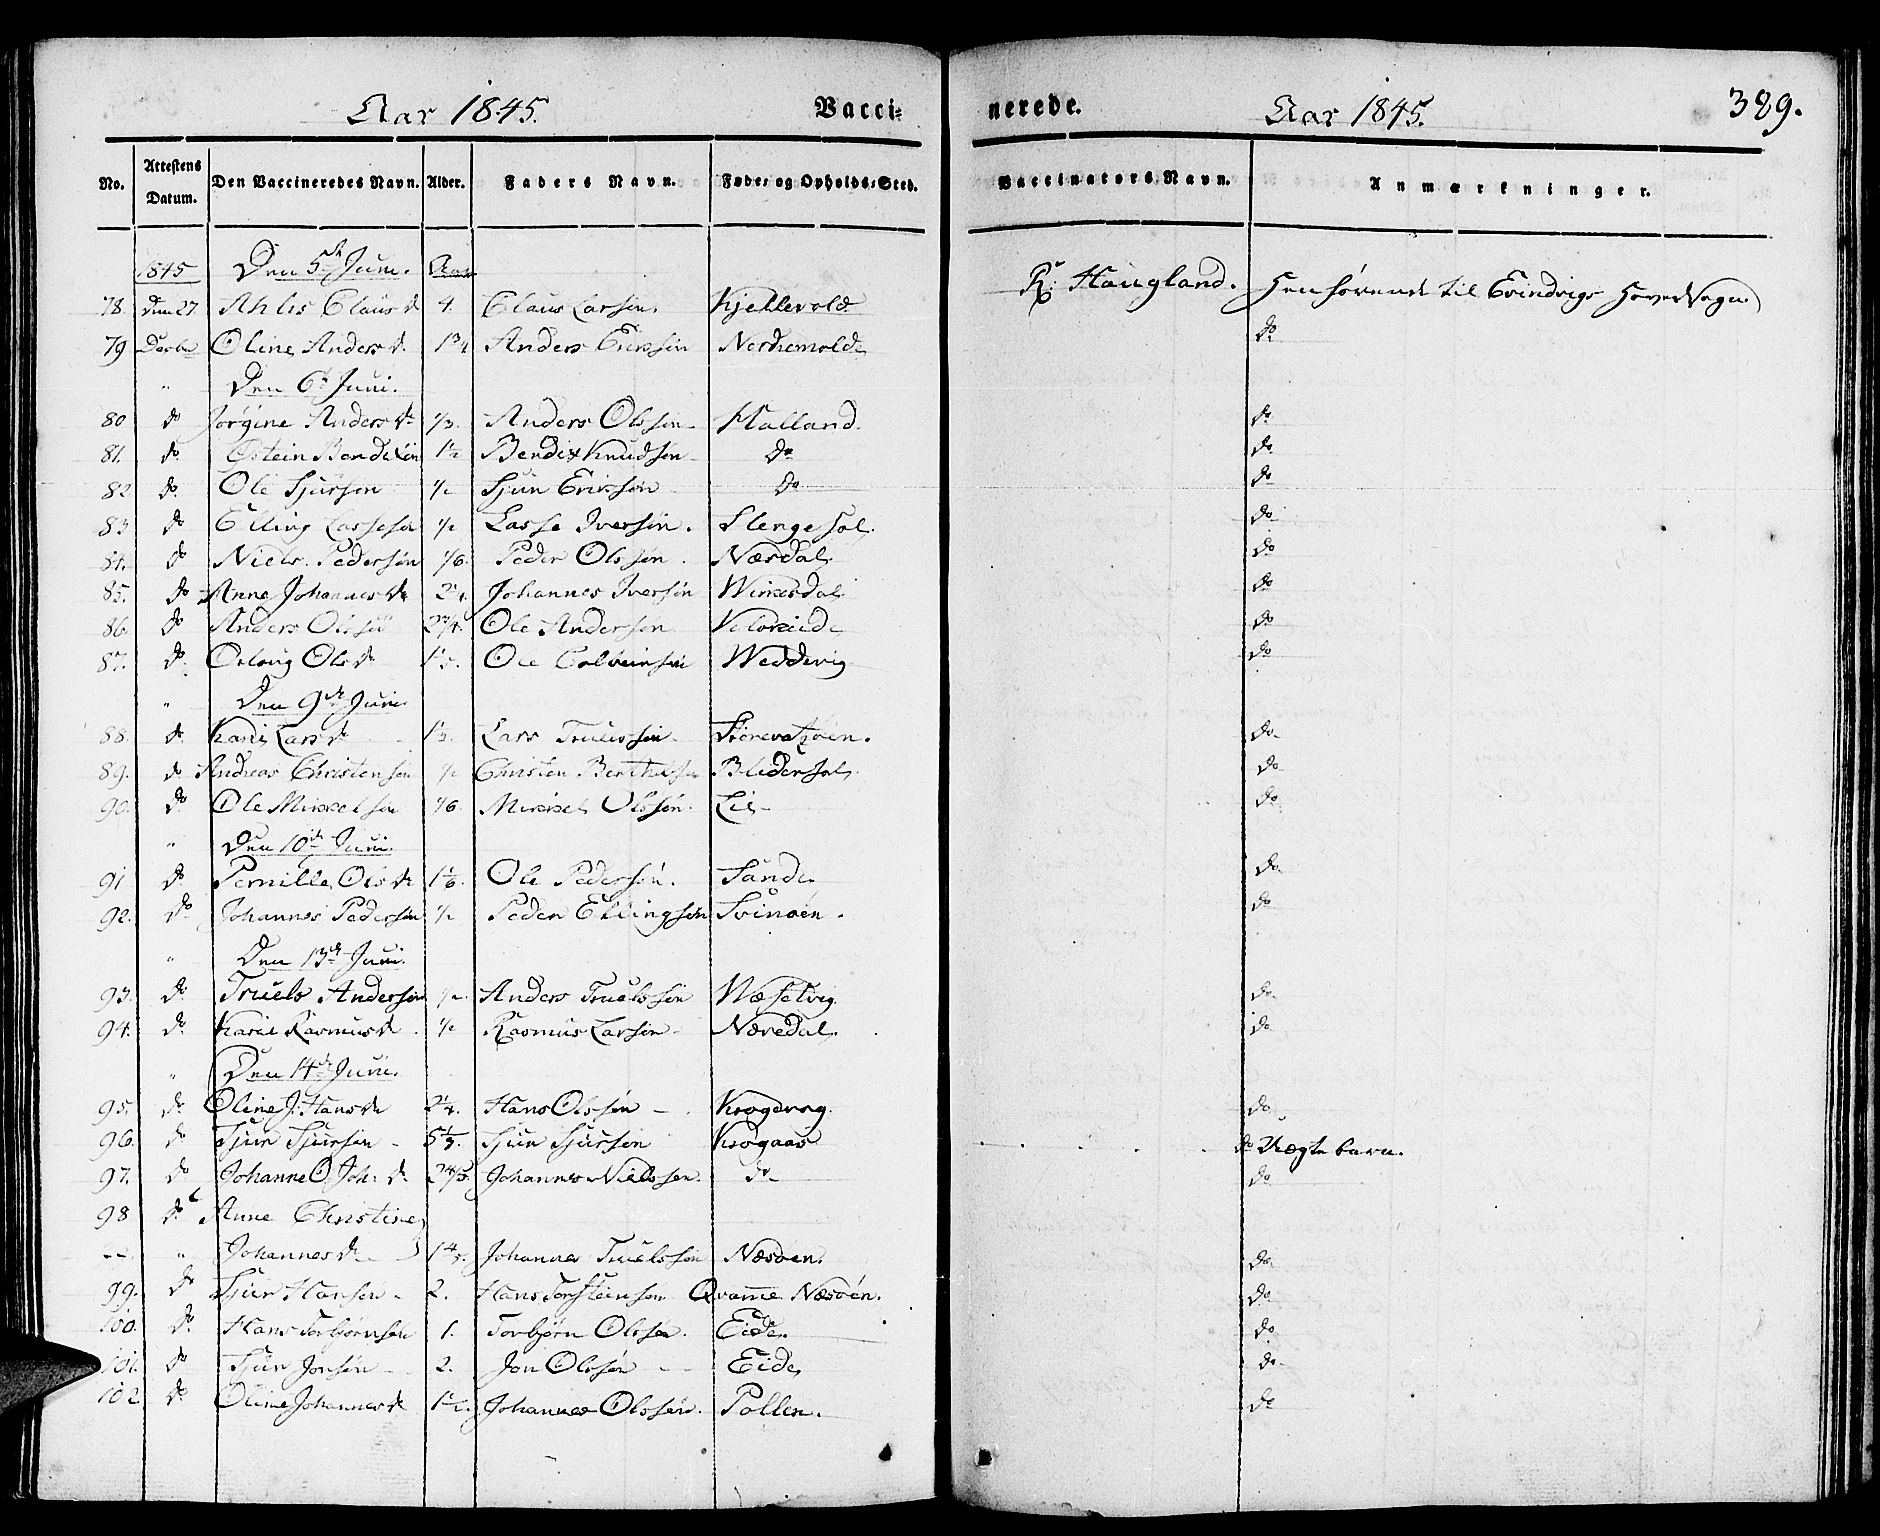 Aar 1845. Vacci=
nerede. Aar 1845. 389.
No. Attestens Datum. Den Vaccineredes Navn. Alder. Faders Navn. Føde- og Opholds-Sted. Vaccinators Navn. Anmærkninger.
1845 Den 5te Juni. Aar
78. Den 27. Claus d. 4. Claus Larsen. Kjellevold R: Haugland. Henhørende til Evindvigs Hovedsogn
79 Oline Anders d. 1 3/4 Anders Erikssøn do
" Den 6te Juni.
80 do Jørgine Anders dr 1/3. Anders Olssøn Halland. do
81. do Østein Bendixsøn 1 1/2 Bendix Knudsøn do do
82 do Ole Sjursøn 1/2 Sjur Erikssøn do do
83 do Elling Lassesøn 1/2 Lasse Iversøn. Slengesol. do
84. do Niels Pedersøn 1/6. Peder Olssøn. Næsdal do
85. do Anne Johannes dr Johannes Iversøn do
86. do Anders Olssøn 2 3/4. Ole Andersøn do
87. do Ols dr Ole Wedvig do
" Den 9de Juni.
88. do Kari Lars dr Lars Truelssøn do
89. do Andreas Christensøn 1/2 Christen Berthelsøn do
90. do Ole Mikkelsøn 1/6 Mikkel Olssøn. Lie do
" Den 10de Juni.
91 do Pernille Ols dr 1 1/6. Ole Pedersøn. Sande do
92. do Johannes Pedersøn 1/2 Peder Ellingsøn Svinøen. do
" Den 13de Juni.
93. do Truels Andersøn 1/2 Anders Truelssøn do
94. do Kari Rasmus dr 1/2 Rasmus Larsøn Nævedal. do
" Den 14de Juni.
95. do Oline J: Hans dr 2 1/4. Hans Olssøn do
96. do Sjur Sjursøn 5 1/3. Sjur Sjursøn Krogaas do Uægte barn.
97. do Johanne O Joh: dr 2 4/5. Johannes Nielssen. do do
98 do Anne Christine
-- " Johannes dr 1 4/5. Johannes Truelssøn Næsøen. do
99. do Sjur Hansøn 2. Hans Torsteinsøn Qvamme Næsøen. do
100. do Hans Torbjørnsøn 1. Torbjørn Olsson. Eide. do
101. do Sjur Jonsøn 2. Jon Olssøn Eide do
102 do Oline Johannes dr 1 1/2. Johannes Olssøn. Pollen. do